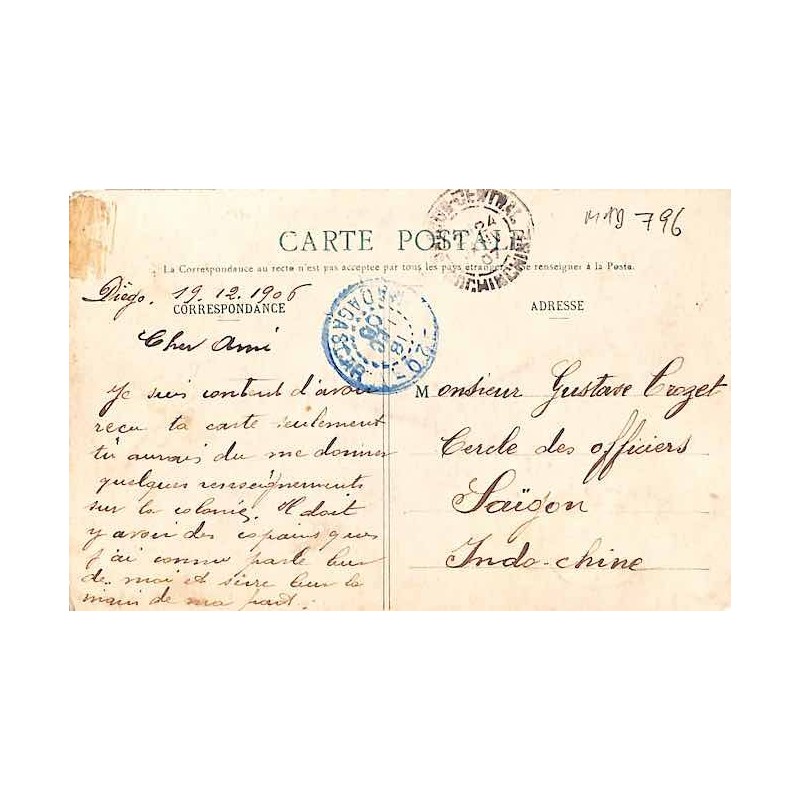 MAD 796
CARTE POSTALE
La Correspondance au recto n'est pas acceptée par tous les pays étrangers. Se renseigner à la Poste.
Diégo. 19.12.1906
CORRESPONDANCE
Cher Ami
Je suis content d'avoir
reçu ta carte seulement
tu aurais du me donner
quelques renseignements
sur la colonie. Il doit
y avoir des copains que
j'ai connu parle leur
de moi et serre leur la
main de ma part.
ADRESSE
Monsieur Gustave Crozet
Cercle des officiers
Saïgon
Indo-chine
MADAGASCAR
CENTRAL
COCHINCHINE